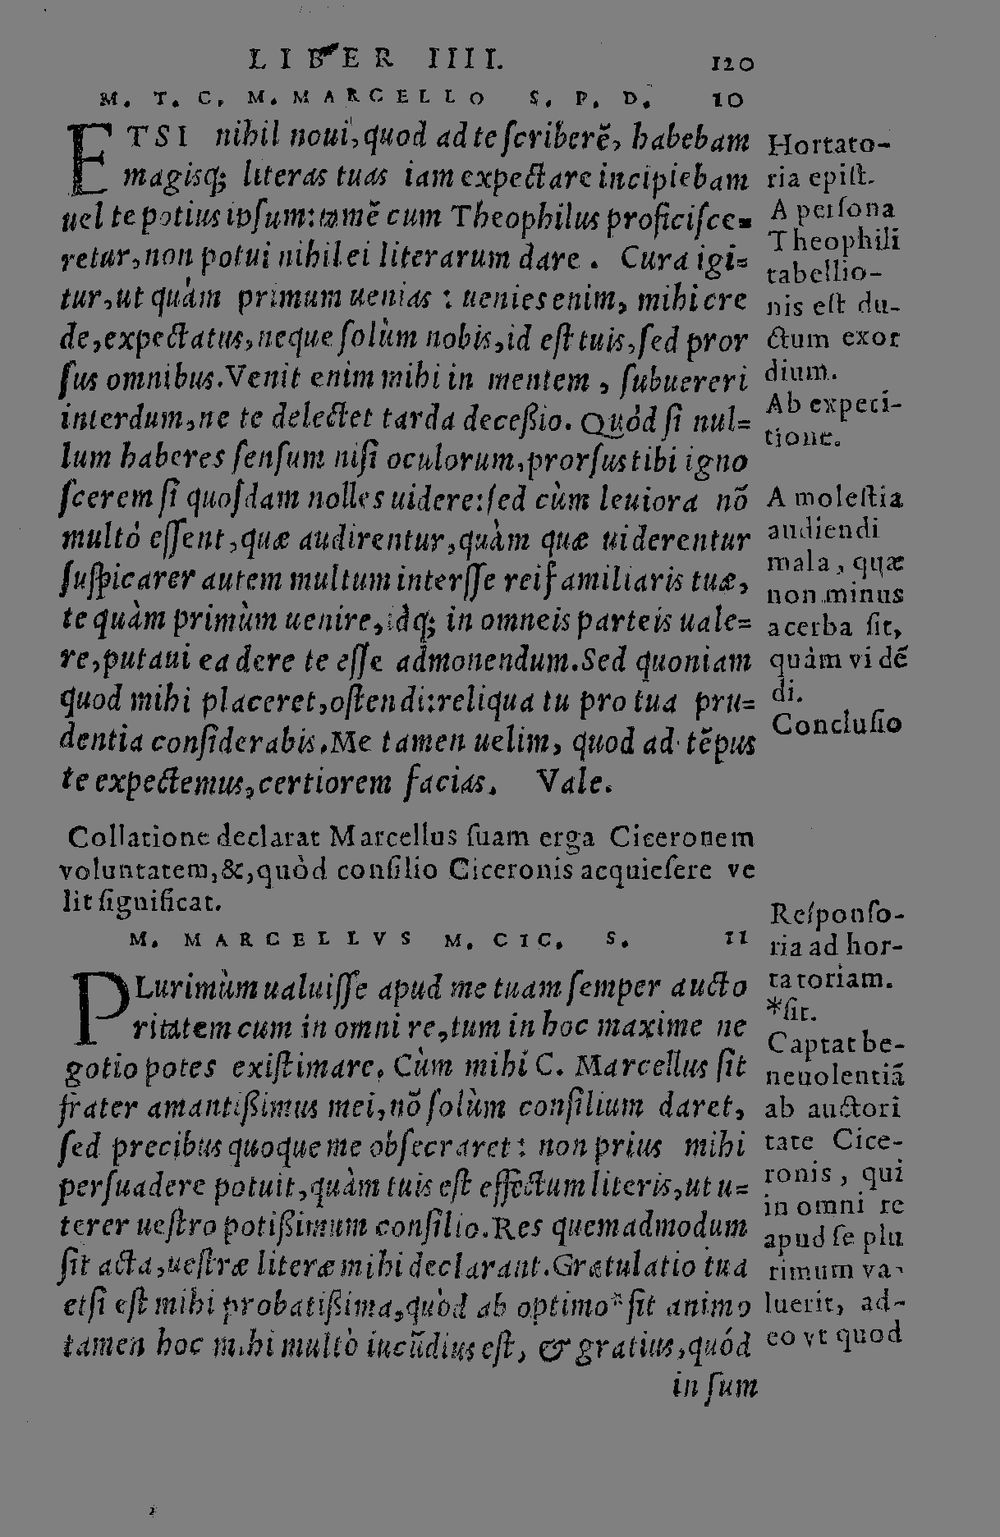 LIBER IIII. 120
M. T. C. M. MARCELLO S. P. D. 10
ETSI nihil noui, quod ad te scriberē, habebam
magisq; literas tuas iam expectare incipiebam
uel te potius ipsum: tamē cum Theophilus proficisce=
retur, non potui nihil ei literarum dare. Cura igi=
tur, ut quàm primum uenias: uenies enim, mihi cre
de, expectatus, neque solùm nobis, id est tuis, sed pror
sus omnibus. Venit enim mihi in mentem, subuereri
interdum, ne te delectet tarda deceßio. Quòd si nul=
lum haberes sensum nisi oculorum, prorsus tibi igno
scerem si quosdam nolles uidere: sed cùm leuiora nō
multò essent, quæ audirentur, quàm quæ uiderentur
suspicarer autem multum interesse rei familiaris tuæ,
te quàm primùm uenire, idq; in omneis parteis uale=
re, putaui ea de re te esse admonendum. Sed quoniam
quod mihi placeret, ostendi: reliqua tu pro tua pru=
dentia considerabis. Me tamen uelim, quod ad tēpus
te expectemus, certiorem facias. Vale.
Hortato-
ria epist.
A persona
Theophili
tabellio-
nis est du-
ctum exor
dium.
Ab expeci-
tione.
A molestia
audiendi
mala, quæ
non minus
acerba sit,
quàm vidē
di.
Conclusio
Collatione declarat Marcellus suam erga Ciceronem
voluntatem, &, quòd consilio Ciceronis acquiesere ve
lit significat.
M. MARCELLVS M. CIC. S. 11
PLurimùm ualuisse apud me tuam semper aucto
ritatem cum in omni re, tum in hoc maxime ne
gotio potes existimare. Cùm mihi C. Marcellus sit
frater amantißimus mei, nō solùm consilium daret,
sed precibus quoque me obsecraret: non prius mihi
persuadere potuit, quàm tuis est effectum literis, ut u=
terer uestro potißimum consilio. Res quemadmodum
sit acta, uestræ literæ mihi declarant. Gratulatio tua
etsi est mihi probatißima, quòd ab optimo* sit animo
tamen hoc mihi multò iucūdius est, & gratius, quód
in sum
Responso-
ria ad hor-
tatoriam.
*sit.
Captat be-
neuolentiā
ab auctori
tate Cice-
ronis, qui
in omni re
apud se plu
rimum va-
luerit, ad-
eo vt quod